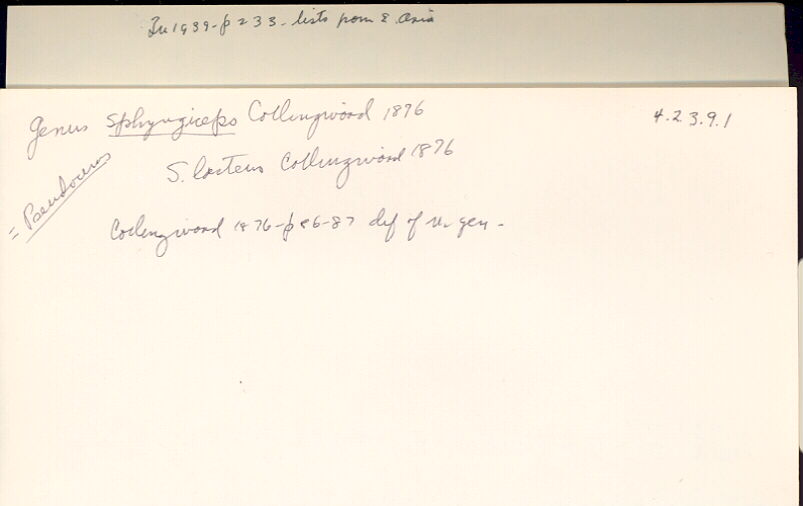 Tu 1939-p 233 - lists from E. Asia
Genus Sphyngiceps Collingwood 1876
4.23.9.1
S. lacteus Collingwood 1876
= Pseudoceros
Collingwood 1876-p 86-87 def of n. gen -